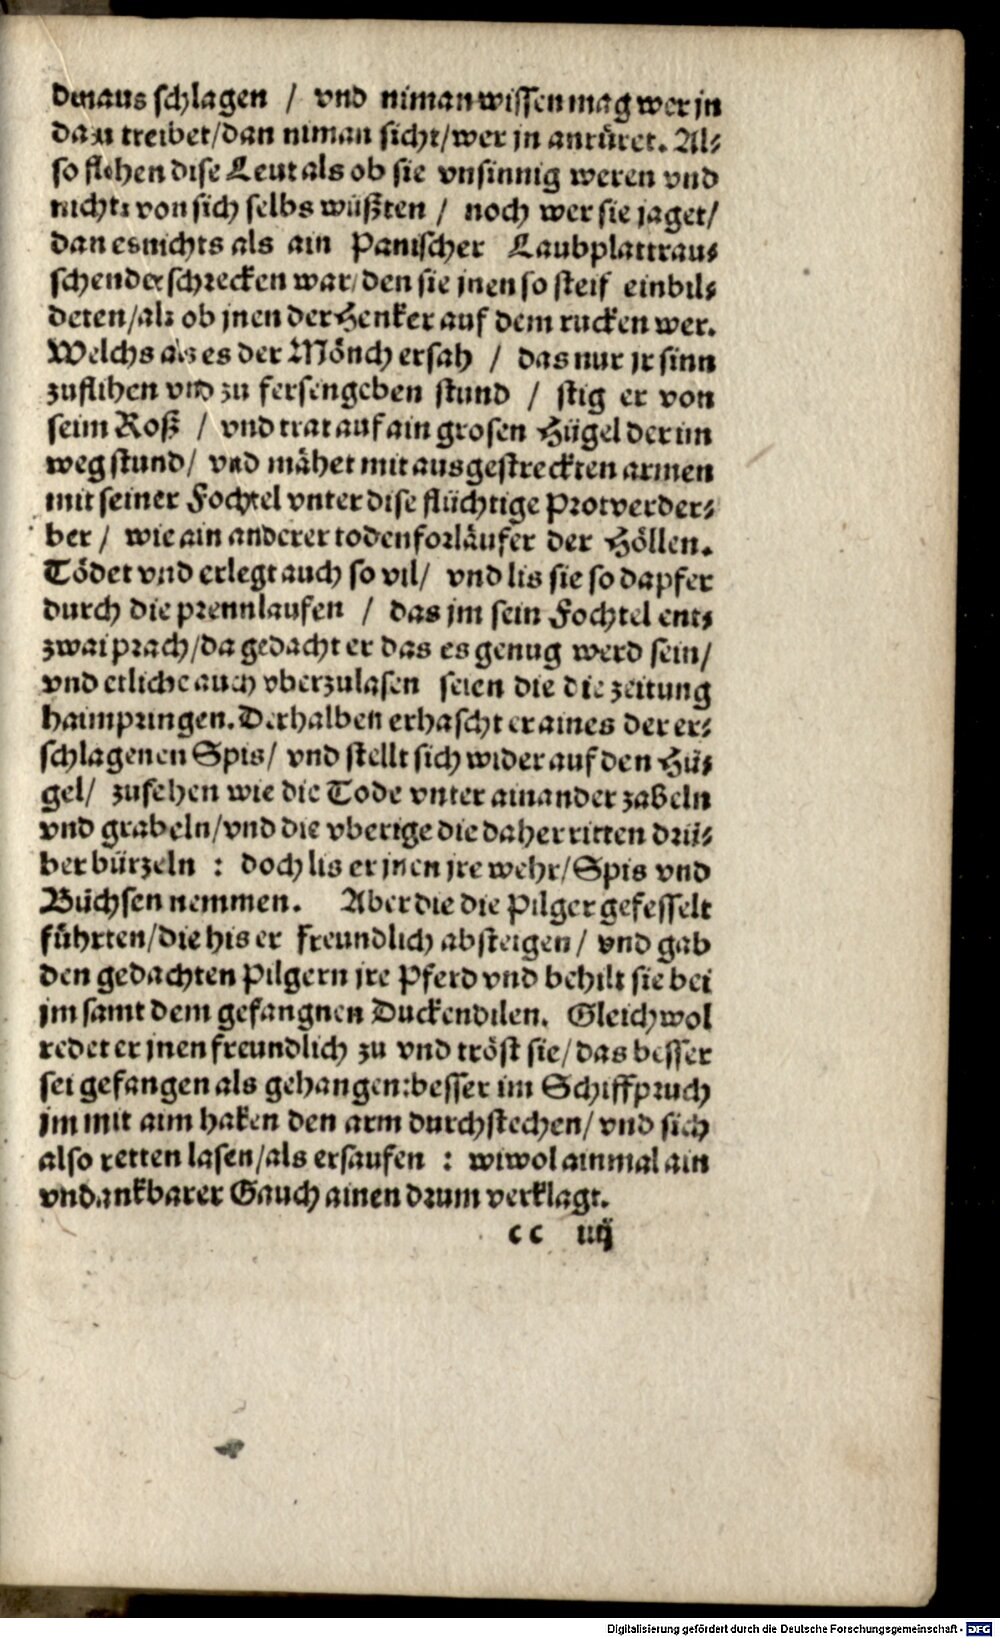 dinaus schlagen / vnd niman wissen mag wer jn
dazu treibet/dan niman sicht/wer jn anrüret. Al⸗
so flohen dise Leut als ob sie vnsinnig weren vnd
nichts von sich selbs wüßten / noch wer sie jaget/
dan es nichts als ain Panischer Laubplattrau⸗
schender schrecken war/den sie jnen so steif einbil⸗
deten/als ob jnen der Henker auf dem rucken wer.
Welchs als es der Mönch ersah / das nur jr sinn
zuflihen vnd zu fersengeben stund / stig er von
seim Roß / vnd trat auf ain grosen Hügel der im
weg stund/ vnd mähet mit ausgestreckten armen
mit seiner Fochtel vnter dise flüchtige Protverder⸗
ber / wie ain anderer todenforläufer der Höllen.
Tödet vnd erlegt auch so vil/ vnd lis sie so dapfer
durch die prennlaufen / das jm sein Fochtel ent⸗
zwai prach/da gedacht er das es genug werd sein/
vnd etliche auch vberzulasen seien die die zeitung
haimpringen. Derhalben erhascht er aines der er⸗
schlagenen Spis/ vnd stellt sich wider auf den Hü⸗
gel/ zusehen wie die Tode vnter ainander zabeln
vnd grabeln/vnd die vberige die daher ritten drü⸗
ber bürzeln : doch lis er jnen jre wehr/Spis vnd
Büchsen nemmen. Aber die die Pilger gefesselt
führten/die his er freundlich absteigen/ vnd gab
den gedachten Pilgern jre Pferd vnd behilt sie bei
jm samt dem gefangnen Duckendilen. Gleichwol
redet er jnen freundlich zu vnd tröst sie/das besser
sei gefangen als gehangen:besser im Schiffpruch
jm mit aim haken den arm durchstechen/ vnd sich
also retten lasen/als ersaufen : wiwol ainmal ain
vndankbarer Gauch ainen drum verklagt.
cc iiij
Digitalisierung gefördert durch die Deutsche Forschungsgemeinschaft - DFG